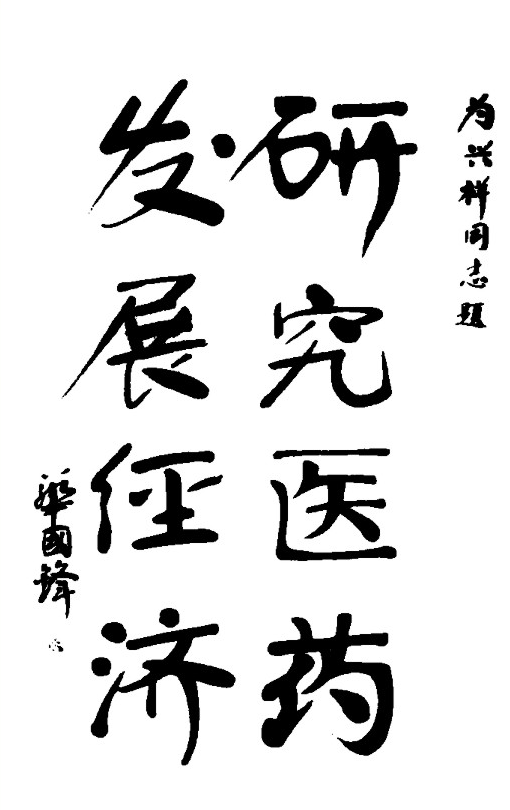 为兴祥同志题
研究医药
发展经济
华國锋